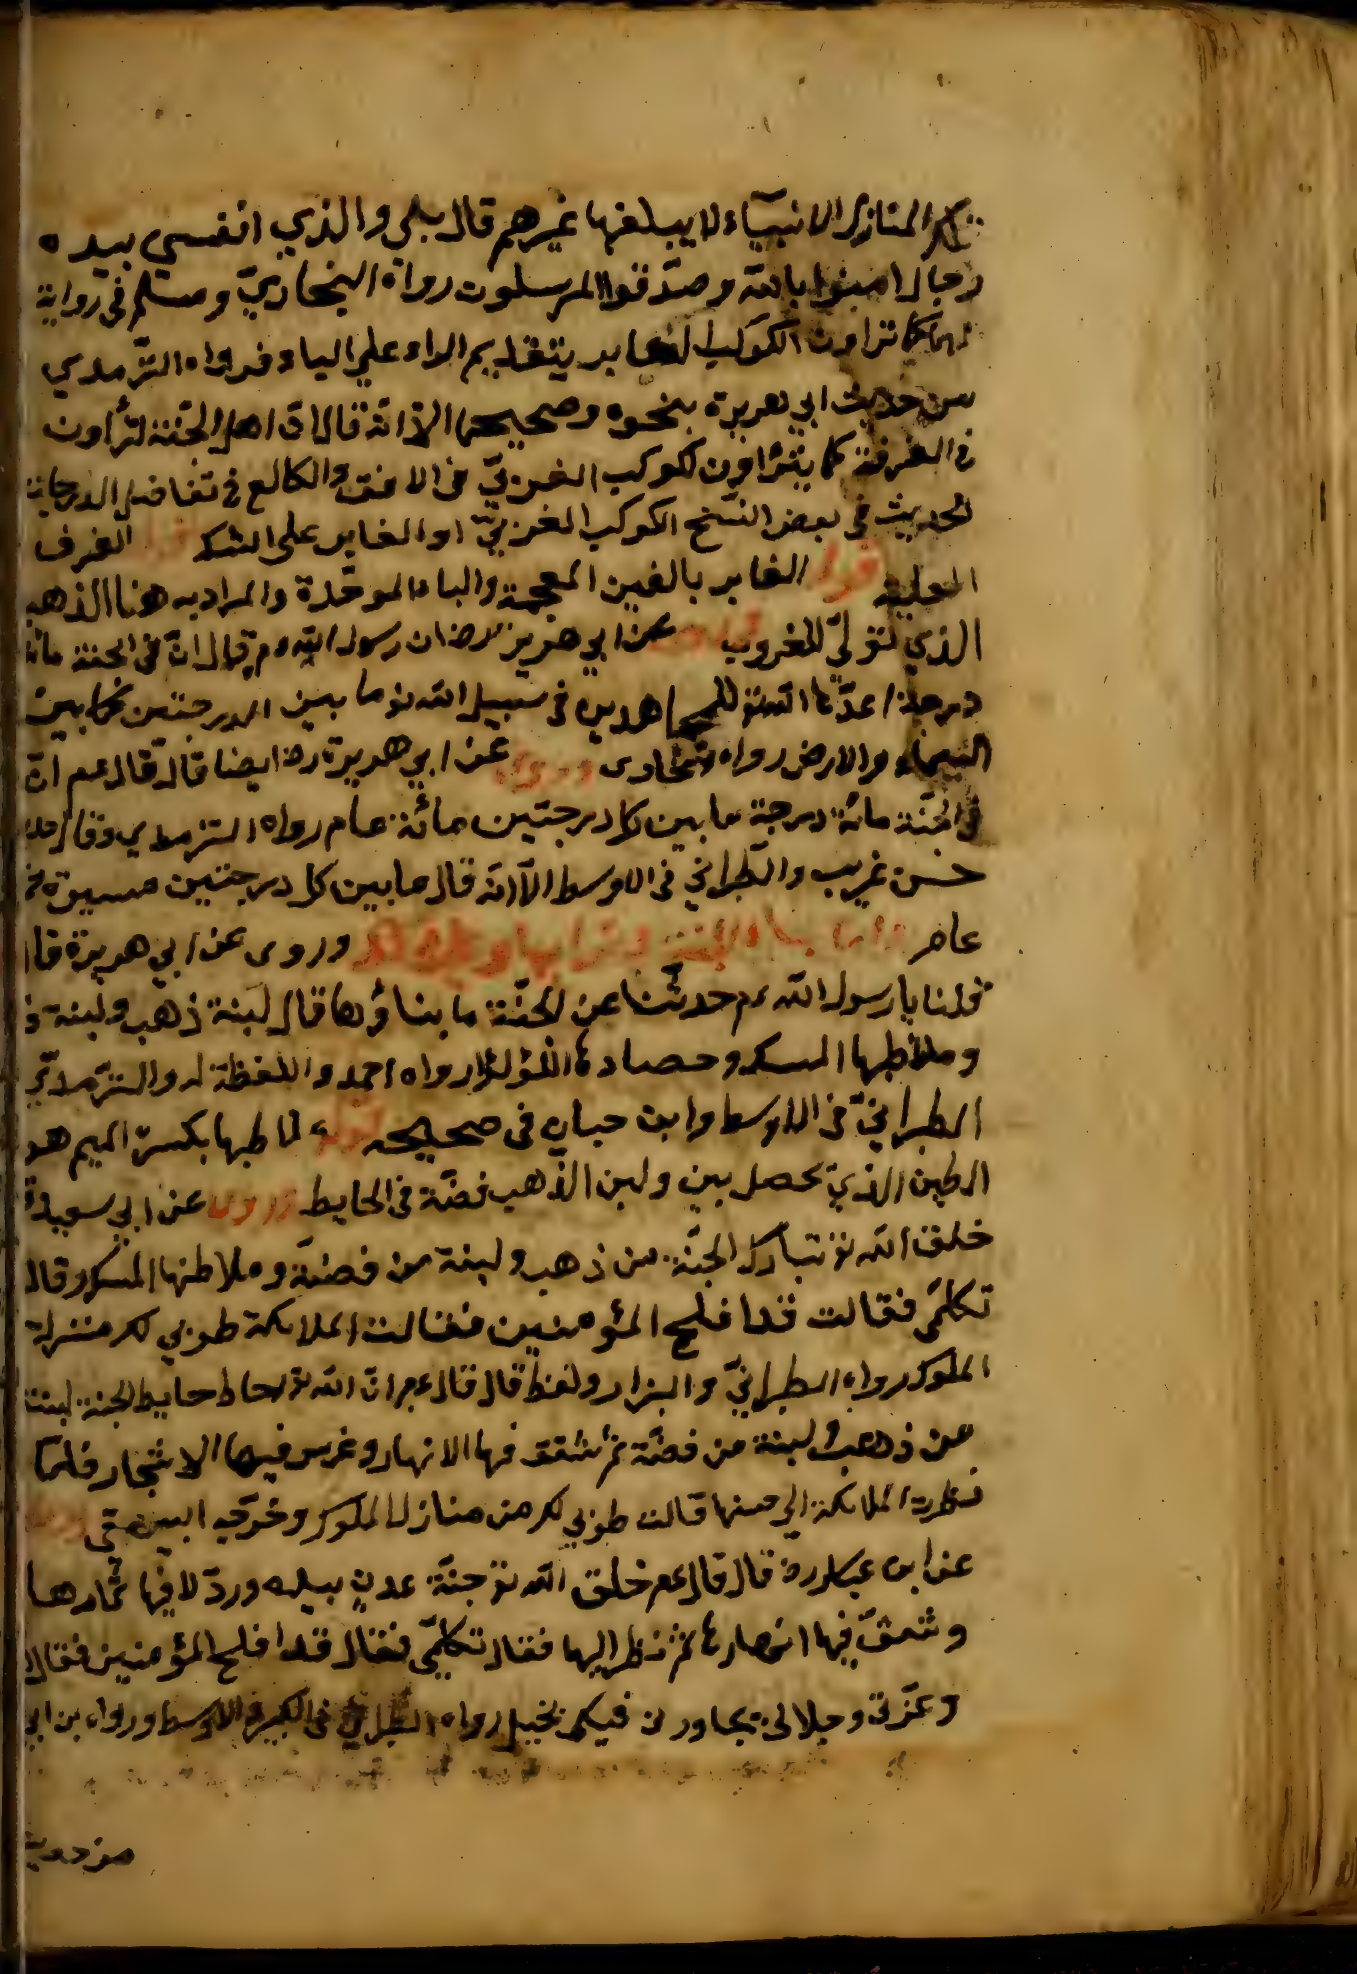 تلك المنازل الانبيآء لا يبلغها غيرهم قال بلي والذي انفسي بيده
رجال امنوا بالله وصدقوا المرسلون رواه البخاري ومسلم في رواية
لهما كما تراون الكوكب الغابر يتقديم الراء علي الياء فرواه الترمدي
من حديث ابي هريرة بنحوه وصحيحها الاّ انّه قال انّ اهل الجنّة لتراون
في الغرفة كما يتراون لكوكب الغربيّ في الافق والكالع في تفاضل الدرجات
الحديث في بعض النسخ الكوكب الغربيّ او الغابر على الشك الغرف
العليه قوله الغابر بالغين المعجمة والباء الموحّدة والمراد به هنا الذهب
الذي لتولّي للغروب عن ابي هريرة رض ان رسول الله م قال انّ في الجنة مائة
درجة اعدّها الله تع للمجاهدين في سبيل الله تع ما بين الدرجتين كما بين
السماء والارض رواه بخاري وروي عن ابي هريرة رض ايضا قال قال عم انّ
في الجنّة مائة درجة ما بين كل درجتين مائة عام رواه الترمدي وقال
حسن غريب والطبراني في الاوسط الاّ انّه قال ما بين كل درجتين مسيرة
عام وروى عن ابي هريرة قال
قلنا يا رسول الله م حدثنا عن الجنّة ما بناؤها قال لبنة ذهب ولبنة
وملاطها المسك وحصادها اللؤلؤ رواه احمد واللفظة له والترمديّ
الطبرانيّ في الاوسط وابن حبان في صحيحه قوله ملاطها بكسرة الميم هو
الطين الذي يحصل بين ولبن الذهب فضّة في الحايط وروى عن ابي سعيد
خلق الله تع تبارك الجنّة من ذهب ولبنة من فضّة وملاطها المسك وقال
تكلمّي فقالت قد افلح المؤمنين فقالت الملائكة طوبي لك منزلة
الملوك رواه الطبرانيّ والبزار ولفظ قال قال عم انّ الله تع احاط حايط الجنة لبنة
من ذهب ولبنة من فضّة ثم شقق فيها الانهار وغرس فيها الاشجار فلمّا
نظرت الملائكة الي حسنها قالت طوبي لك من منازل الملوك وخرّجه البيهقي
عن ابن عباس رض قال قال عم خلق الله تع جنّة عدن بيده وردّلا فيها ثمارها
وشقّ فيها انهارها ثم نظر اليها فقال تكلمّي فقال قد افلح المؤمنين فقال
وعزتي وجلالي يجاورن فيكي بخيل رواه الطبراني في الكبير والاوسط ورواه بن ابي
من حديث